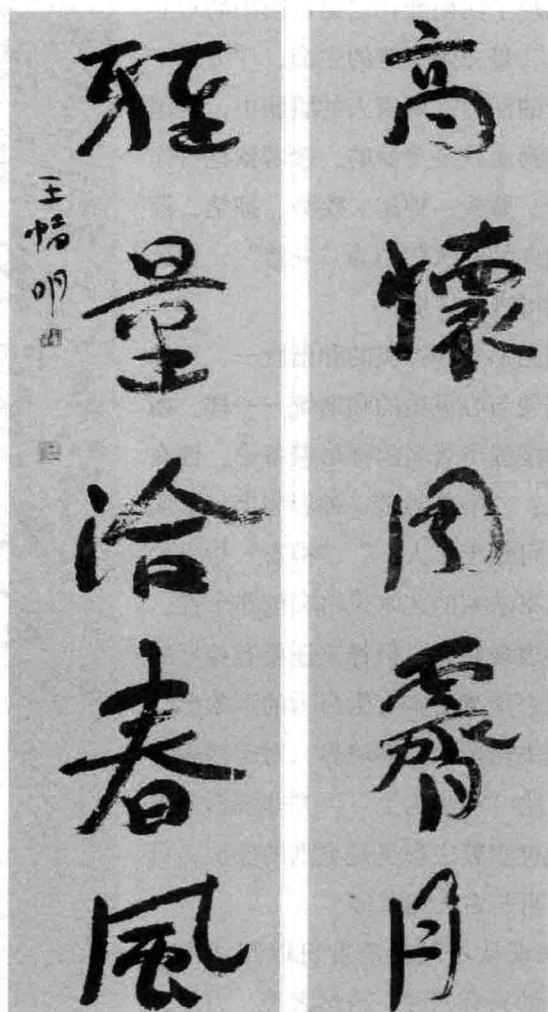 高懷同霽月
雅量洽春風
王幅明